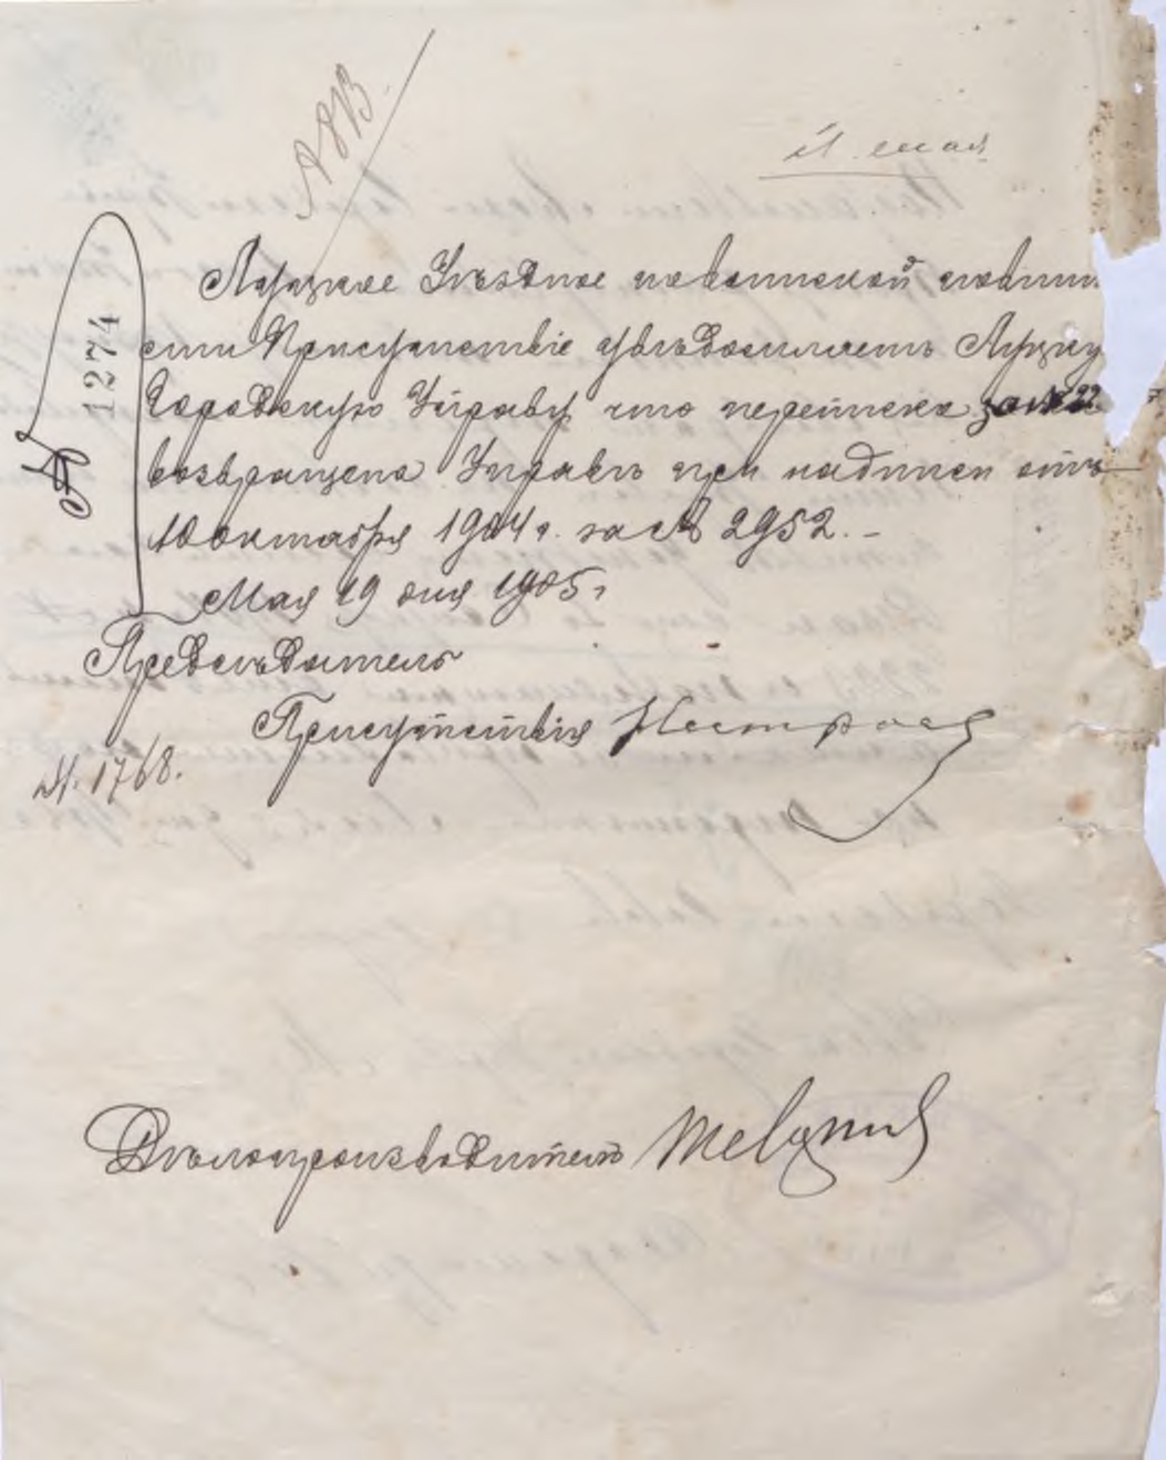 21 мая
1274
Луцкое Уѣздное по воинской повинно
сти Присутствіе увѣдомляетъ Луцкую
Городскую Управу, что переписка за № 22
возвращена Управѣ при надписи отъ
10 октября 1904 г. за № 2952. -
Мая 19 дня 1905 г
Предсѣдатель
Присутствія
№. 1768.
Дѣлопроизводитель